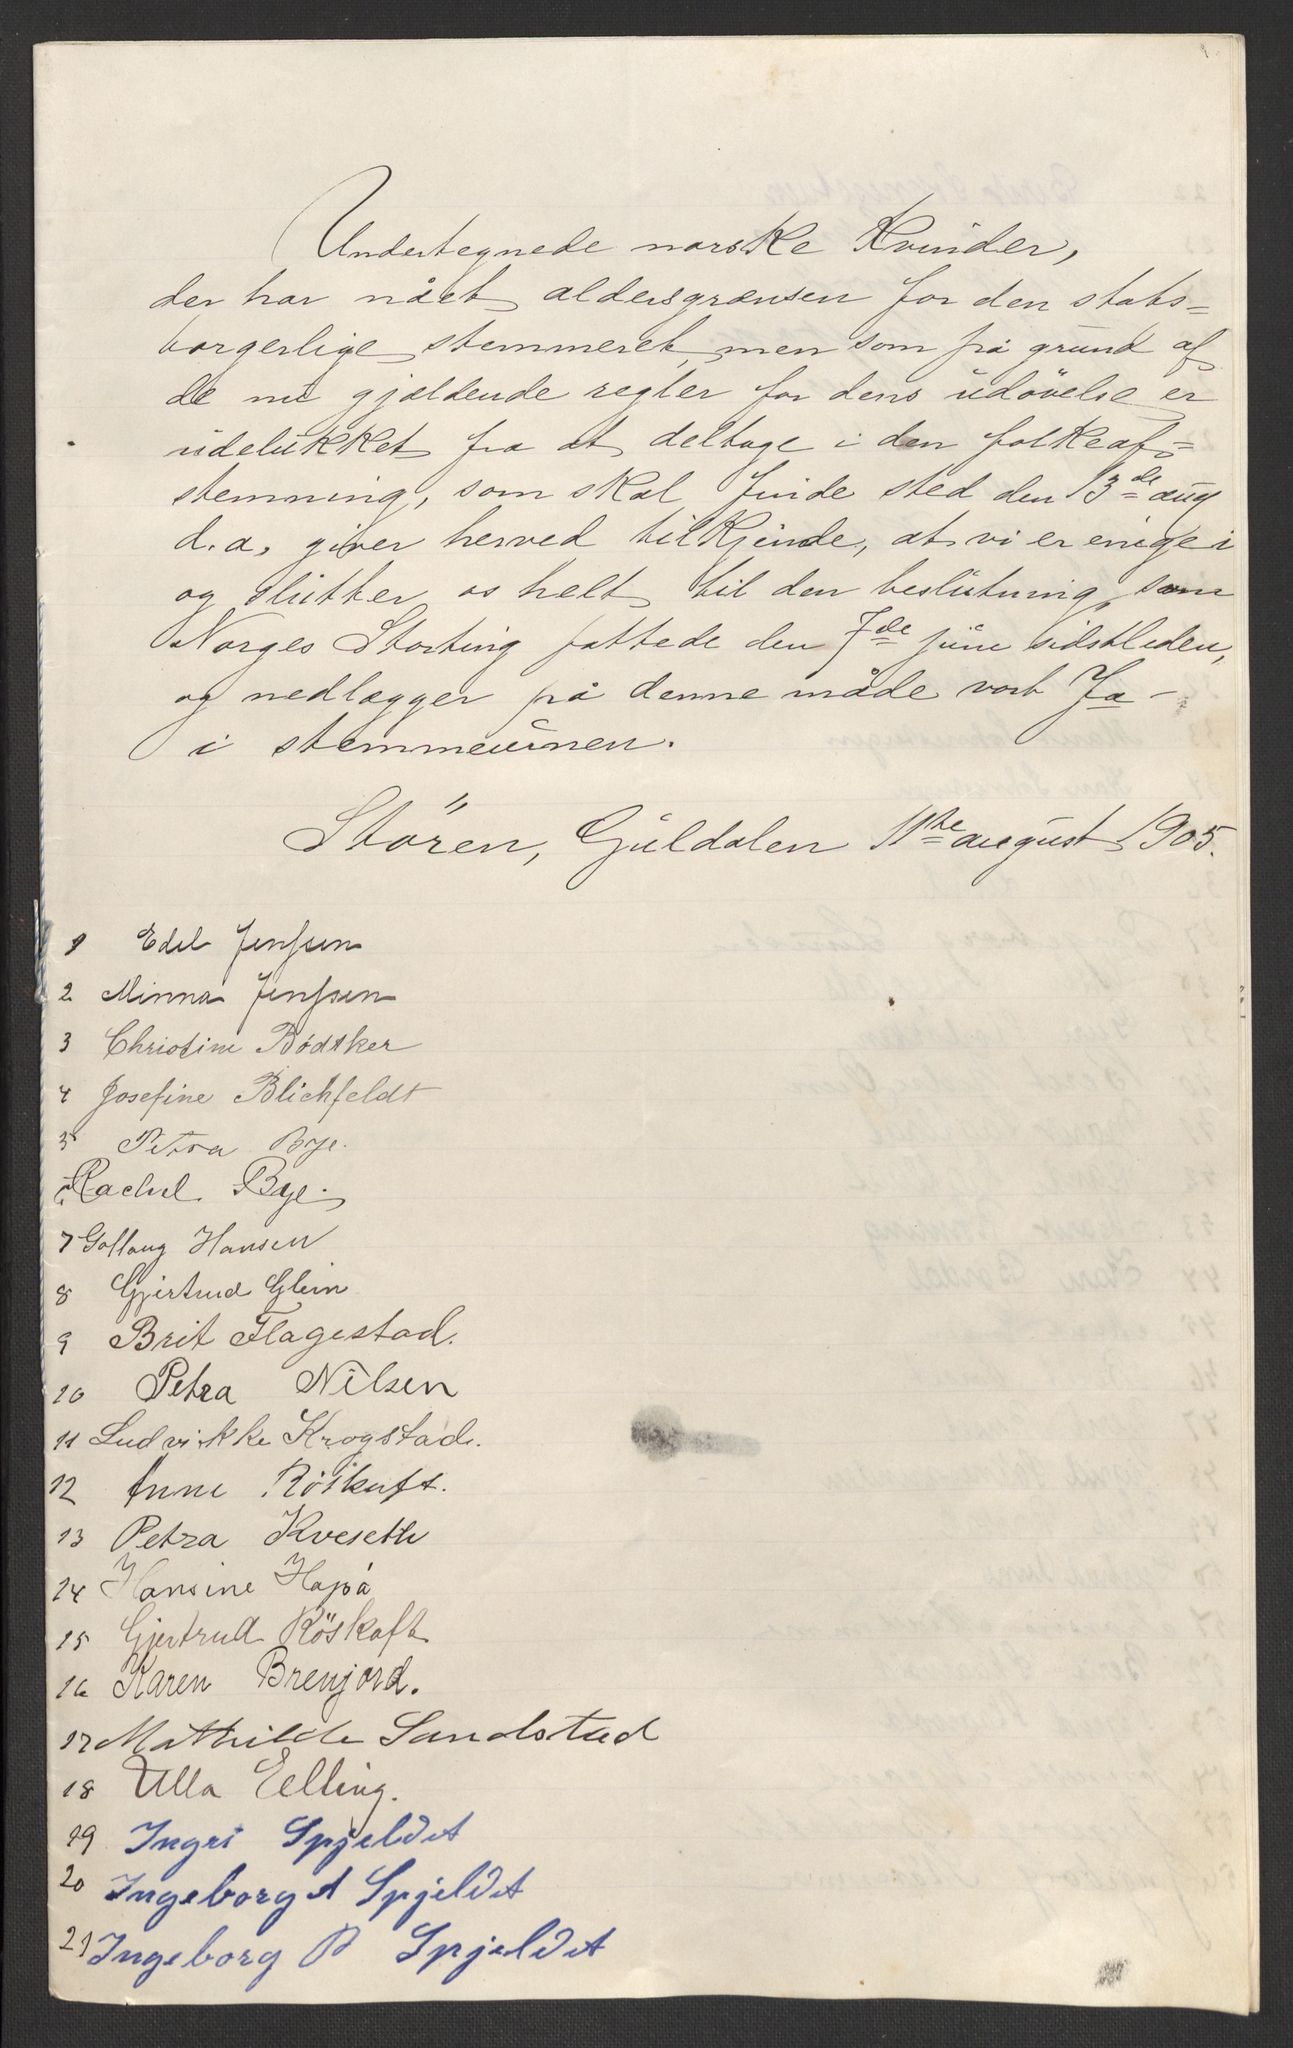 Undertegnede norske Kvinder,
der har nået aldersgrænsen for den stats=
borgerlige stemmeret, men som på grund af
de nu gjældende regler for dens udövelse er
udelukket fra at deltage i den folkeaf=
stemning, som skal finde sted den 13de aug
d.a., giver herved tilkjende, at vi er enige i
og slutter os helt til den beslutning, som
Norges Storting fattede den 7de juni sidstleden,
og nedlægger på denne måde vort Ja -
i stemmeurnen.
Stören, Guldalen 11te august 1905.
1 Edel Jenssen
2 Minna Jenssen
3 Christine Bødtker
4 Josefine Blichfeldt
5 Petra Bye.
Rachel Bye.
7 Gollaug Hansen
8 Gjertrud Glein
9 Brit Flagestad.
10 Petra Nilsen
11 Ludvikke Krogstad.
12 Anne Röskaft.
13 Petra Kveseth
14 Hansine Hapå
15 Gjertrud Röskaft
16 Karen Brenjord.
17 Mathilde Sandstad
18 Ulla Elling.
19 Ingri Spjeldet
20 Ingeborg A Spjeldet
21 Ingeborg B Spjeldet